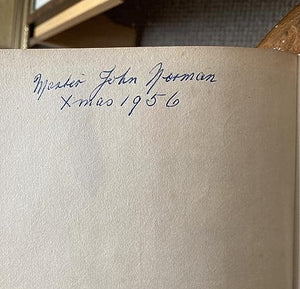 Master John Norman
Xmas 1956